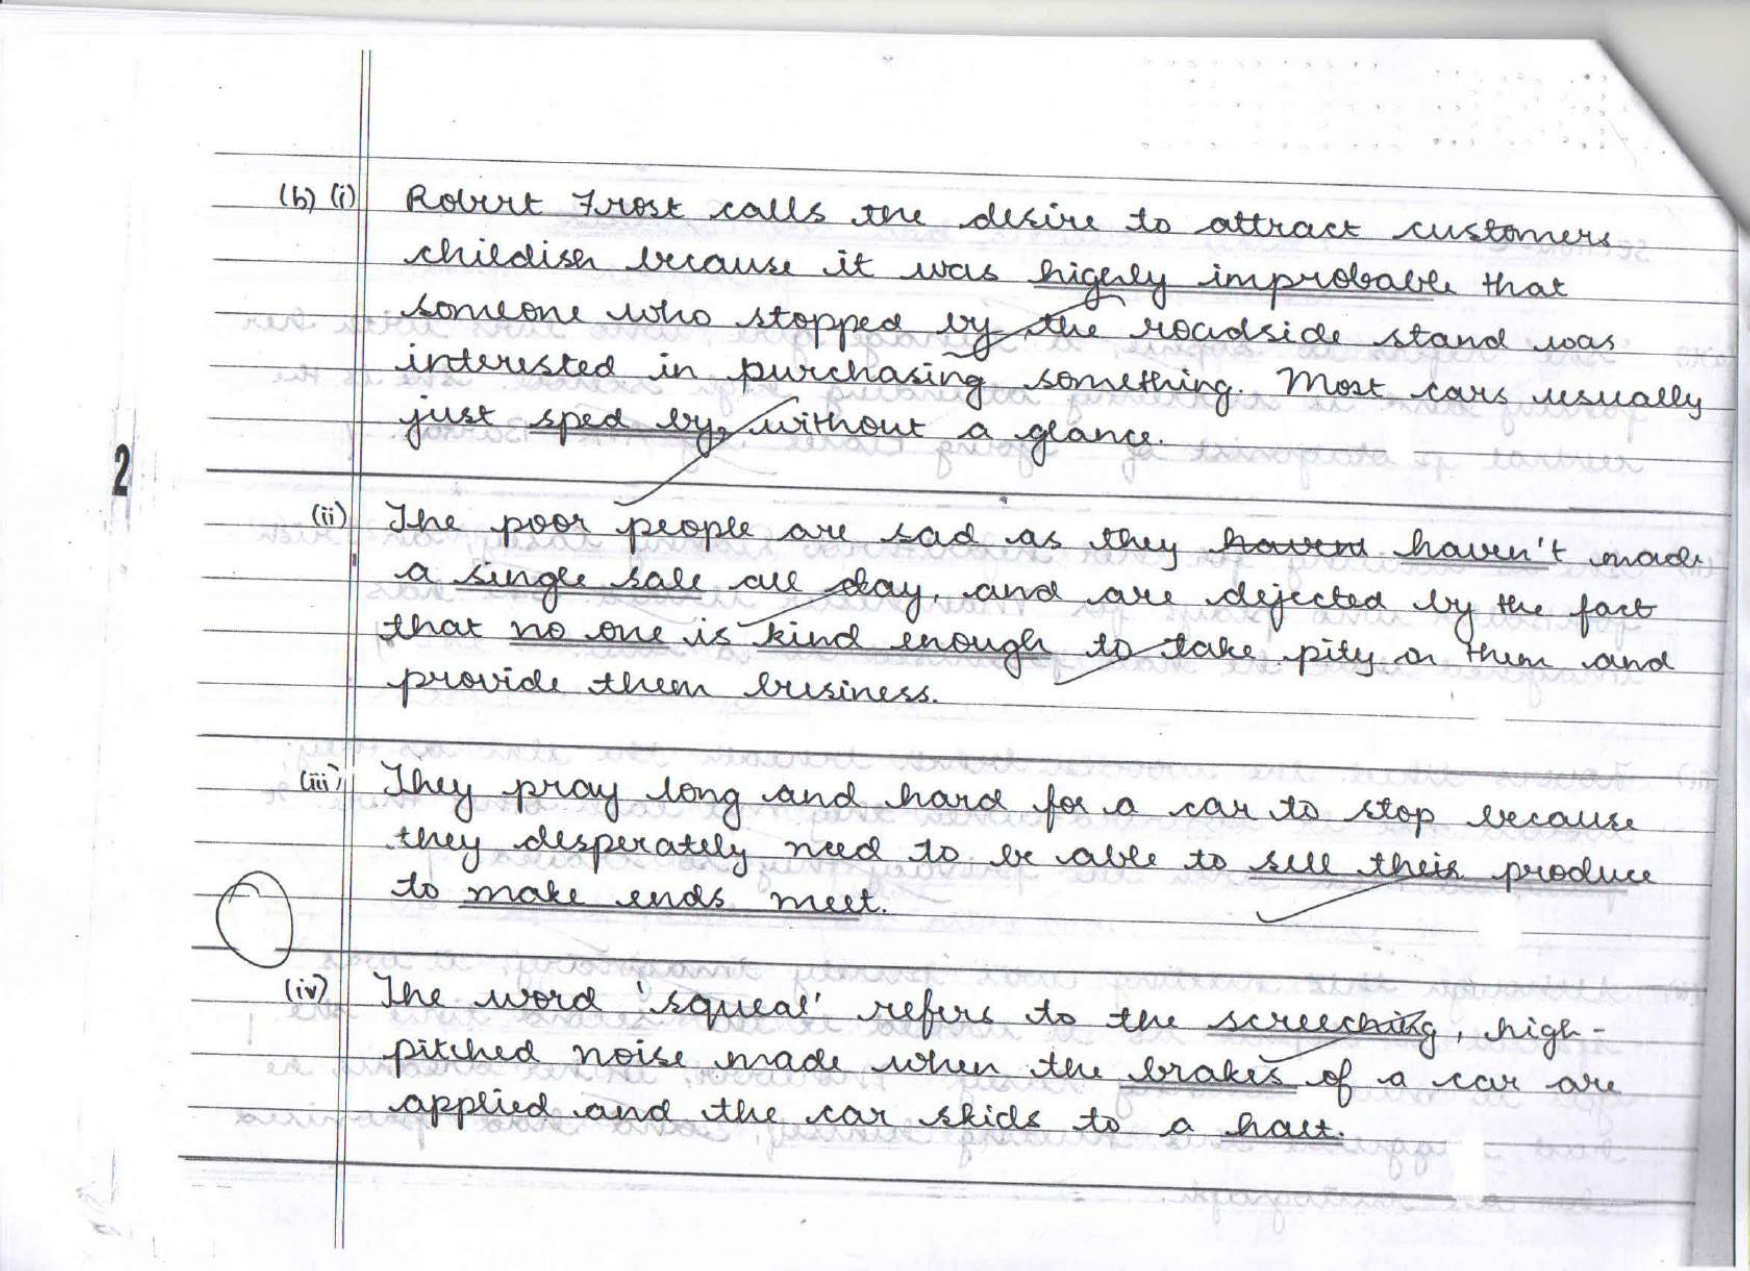 (b) (i) Robert Frost calls the desire to attract customers
childish because it was highly improbable that
someone who stopped by the roadside stand was
interested in purchasing something. Most cars usually
just sped by, without a glance.
2
(ii) The poor people are sad as they havent haven't made
a single sale all day, and are dejected by the fact
that no one is kind enough to take pity on them and
provide them business.
(iii) They pray long and hard for a car to stop because
they desperately need to be able to sell their produce
to make ends meet.
(iv) The word 'squeal' refers to the screeching, high-
pitched noise made when the brakes of a car are
applied and the car skids to a halt.